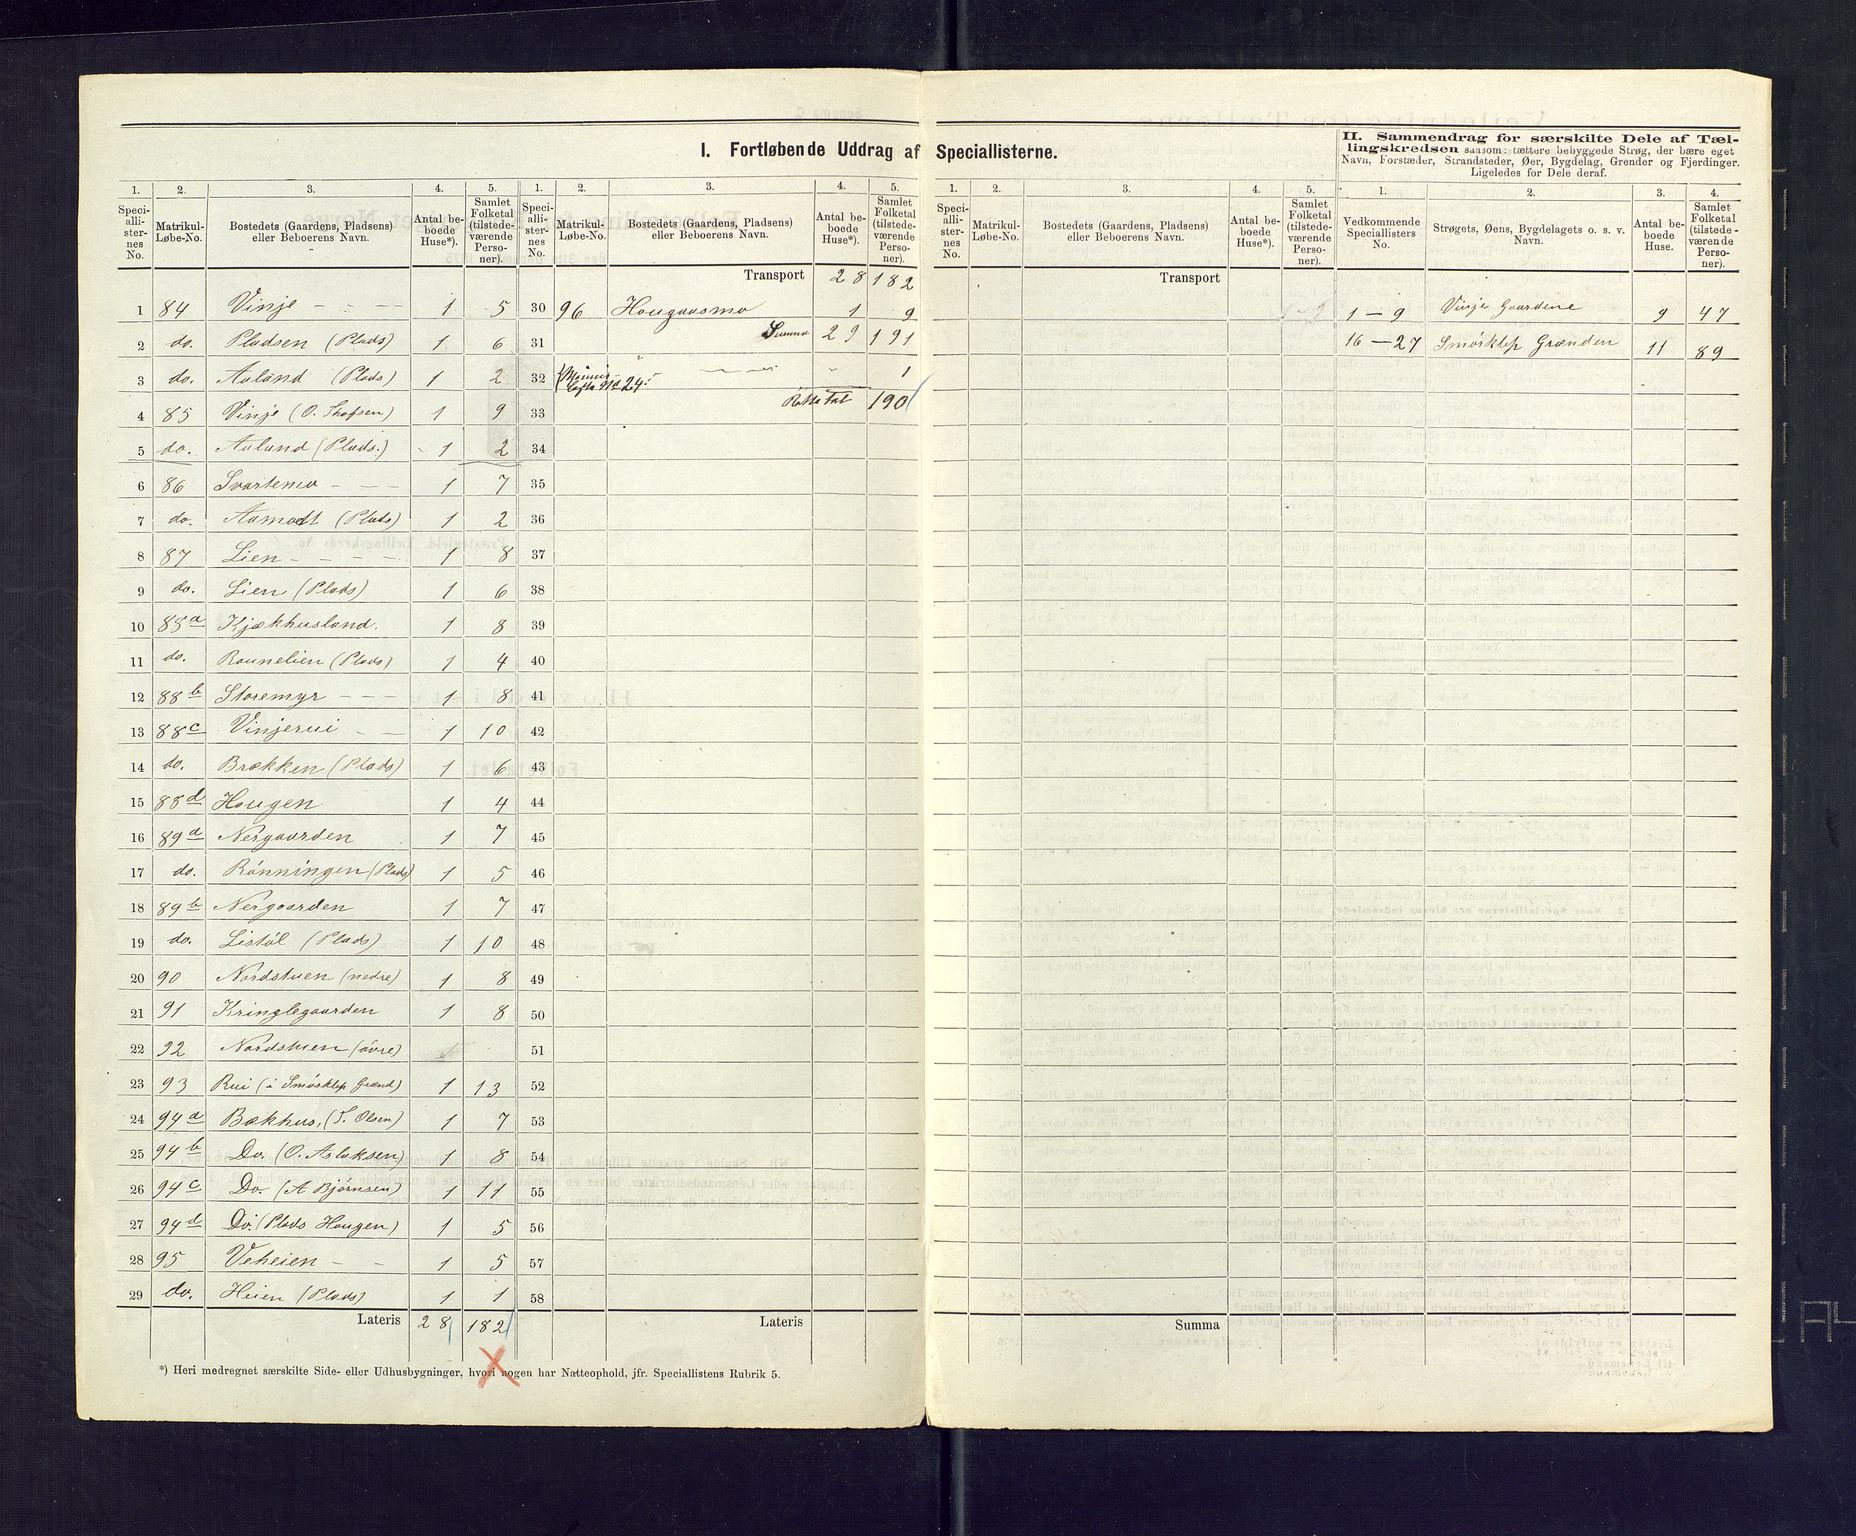 I. Fortløbende Uddrag af Speciallisterne.
II. Sammendrag for særskilte Dele af Tællingskredsen saasom: tættere bebyggede Strøg, der bære eget Navn, Forstæder, Strandsteder, Øer, Bygdelag, Grender og Fjerdinger. Ligeledes for Dele deraf.
1. 2. 3. 4. 5. 1. 2. 3. 4. 5.
Speciallisternes No. Matrikul-Løbe-No. Bostedets (Gaardens, Pladsens) eller Beboerens Navn. Antal beboede Huse*). Samlet Folketal (tilstedeværende Personer).
Speciallisternes No. Matrikul-Løbe-No. Bostedets (Gaardens, Pladsens) eller Beboerens Navn. Antal beboede Huse*). Samlet Folketal (tilstedeværende Personer).
1 84 Vinje - - - 1 5
2 do. Pladsen (Plads) 1 6
3 do. Aaland (Plads) 1 2
4 85 Vinje (O. Thofsen) 1 9
5 do. Aaland (Plads.) 1 2
6 86 Svartemo - - - 1 7
7 do. Aamodt (Plads) 1 2
8 87 Lien - - - - 1 8
9 do. Lien (Plads) 1 6
10 88a Kjækhusland. 1 8
11 do. Raunelien (Plads) 1 4
12 88b Storemyr - - - 1 8
13 88c Vinjerui - - 1 10
14 do. Brækken (Plads) 1 6
15 88d Hougen 1 4
16 89a Nergaarden 1 7
17 do. Rönningen (Plads) 1 5
18 89b Nergaarden 1 7
19 do. Listöl (Plads) 1 10
20 90 Nordstuen (nedre) 1 8
21 91 Kringlegaarden 1 8
22 92 Nordstuen (övre)
23 93 Rui (i Smörklep Grænd) 1 13
24 94a Bækhus, (T. Olsen) 1 7
25 94b Do. (O. Aslaksen) 1 8
26 94c Do. (A Bjørnsen) 1 11
27 94d Do. (Plads Hougen) 1 5
28 95 Veheien - - 1 5
29 do. Heien (Plads) 1 1
Lateris 28 182
Transport 28 182
30 96 Hougaasmo 1 9
31 Summa 29 191
32 24 " 1
33 Rette Tal 190
34
35
36
37
38
39
40
41
42
43
44
45
46
47
48
49
50
51
52
53
54
55
56
57
58
Lateris
*) Heri medregnet særskilte Side- eller Udhusbygninger, hvori nogen har Natteophold, jfr. Speciallistens Rubrik 5.
1. 2. 3. 4. 5.
Speciallisternes No. Matrikul-Løbe-No. Bostedets (Gaardens, Pladsens) eller Beboerens Navn. Antal beboede Huse*). Samlet Folketal (tilstedeværende Personer).
Transport
Summa
1. 2. 3. 4.
Vedkommende Speciallisters No. Strøgets, Øens, Bygdelagets o. s. v. Navn. Antal beboede Huse. Samlet Folketal (tilstedeværende Personer).
1 — 9 Vinje Gaardene 9 47
16 — 27 Smörklep Grænden 11 89